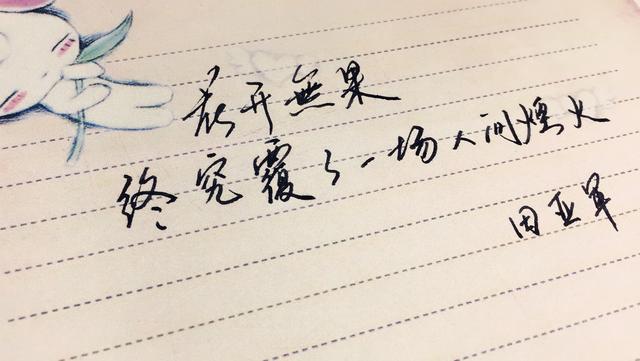 花开無果
终究覆了一场人间煙火
田亚军